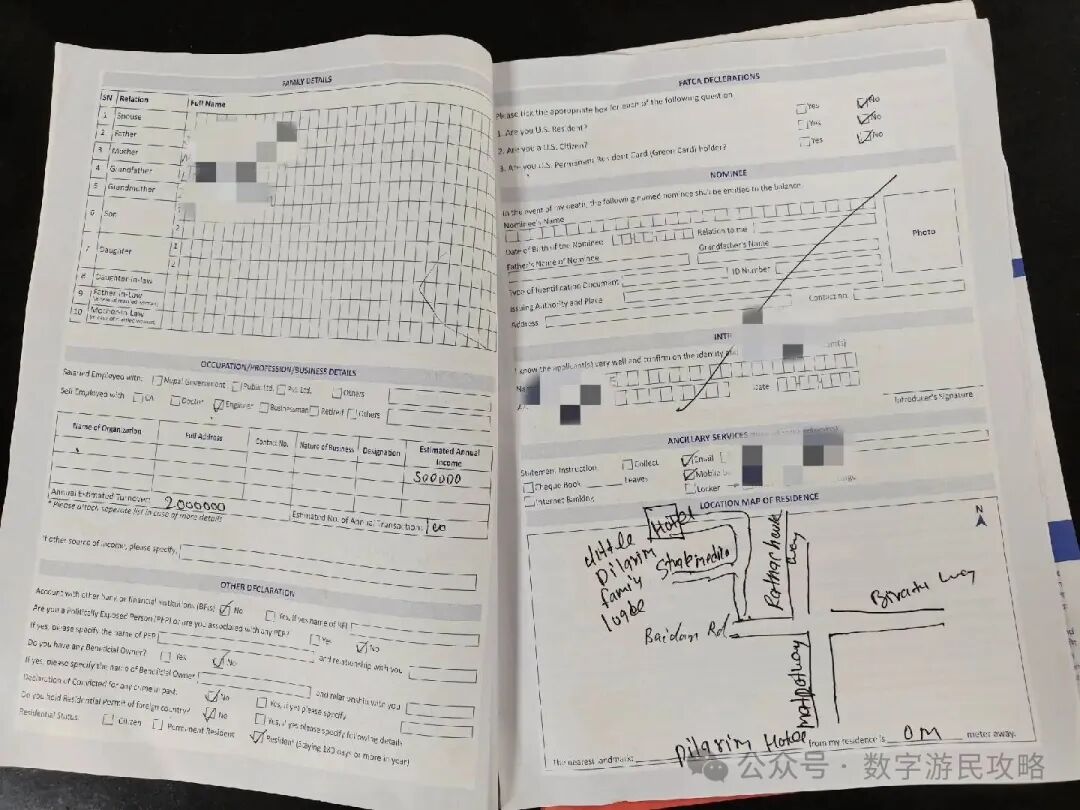 FAMILY DETAILS
SN Relation Full Name
1 Spouse
2 Father
3 Mother
4 Grandfather
5 Grandmother
6 Son
2
7 Daughter 1
2
8 Daughter-in-law
9 Father-in-Law
10 Mother-in-Law
OCCUPATION/PROFESSION/BUSINESS DETAILS
Salaried Employed with: Nepal Government Public Ltd. Pvt. Ltd. Others
Self Employed with CA Doctor Engineer Businessman Retired Others
Name of Organization Full Address Contact No. Nature of Business Designation Estimated Annual Income
500000
Annual Estimated Turnover: 2000000 Estimated No. of Annual Transaction: 100
* Please attach seperate list in case of more details
If other source of income, please specify:
OTHER DECLARATION
Account with other bank or financial institutions (BFIs) No Yes, if yes name of BFI
Are you a Politically Exposed Person (PEP) or are you associated with any PEP? Yes No
If yes, please specify the name of PEP and relationship with you
Do you have any Beneficial Owner? Yes No
If yes, please specify the name of Beneficial Owner and relationship with you
Declaration of Convicted for any crime in past: No Yes, if yes please specify
Do you hold Residential Permit of foreign country? No Yes, if yes please specify following details
Residential Status: Citizen Permanent Resident Resident (Staying 180 days or more in year)
FATCA DECLERATIONS
Please tick the appropriate box for each of the following question
1. Are you U.S. Resident? Yes No
2. Are you a U.S. Citizen? Yes No
3. Are you U.S. Permanent Resident Card (Green Card) holder? Yes No
NOMINEE
In the event of my death, the following named nominee shall be entitled to the balance
Nominee's Name
Date of Birth of the Nominee Relation to me
Father's Name of Nominee Grandfather's Name
Photo
Type of Identification Document ID Number
Issuing Authority and Place
Address Contact no.
INTR
I know the applicant(s) very well and confirm on the identity
Date
Introducer's Signature
ANCILLARY SERVICES
Statement Instruction Collect Email
Cheque Book Leaves Mobile
Internet Banking Locker
LOCATION MAP OF RESIDENCE
N
Little Pilgrim family
Hotel
Baidam Rd
way
The nearest landmark: Pilgrim Hotel from my residence is 0 M meter away.
公众号 · 数字游民攻略